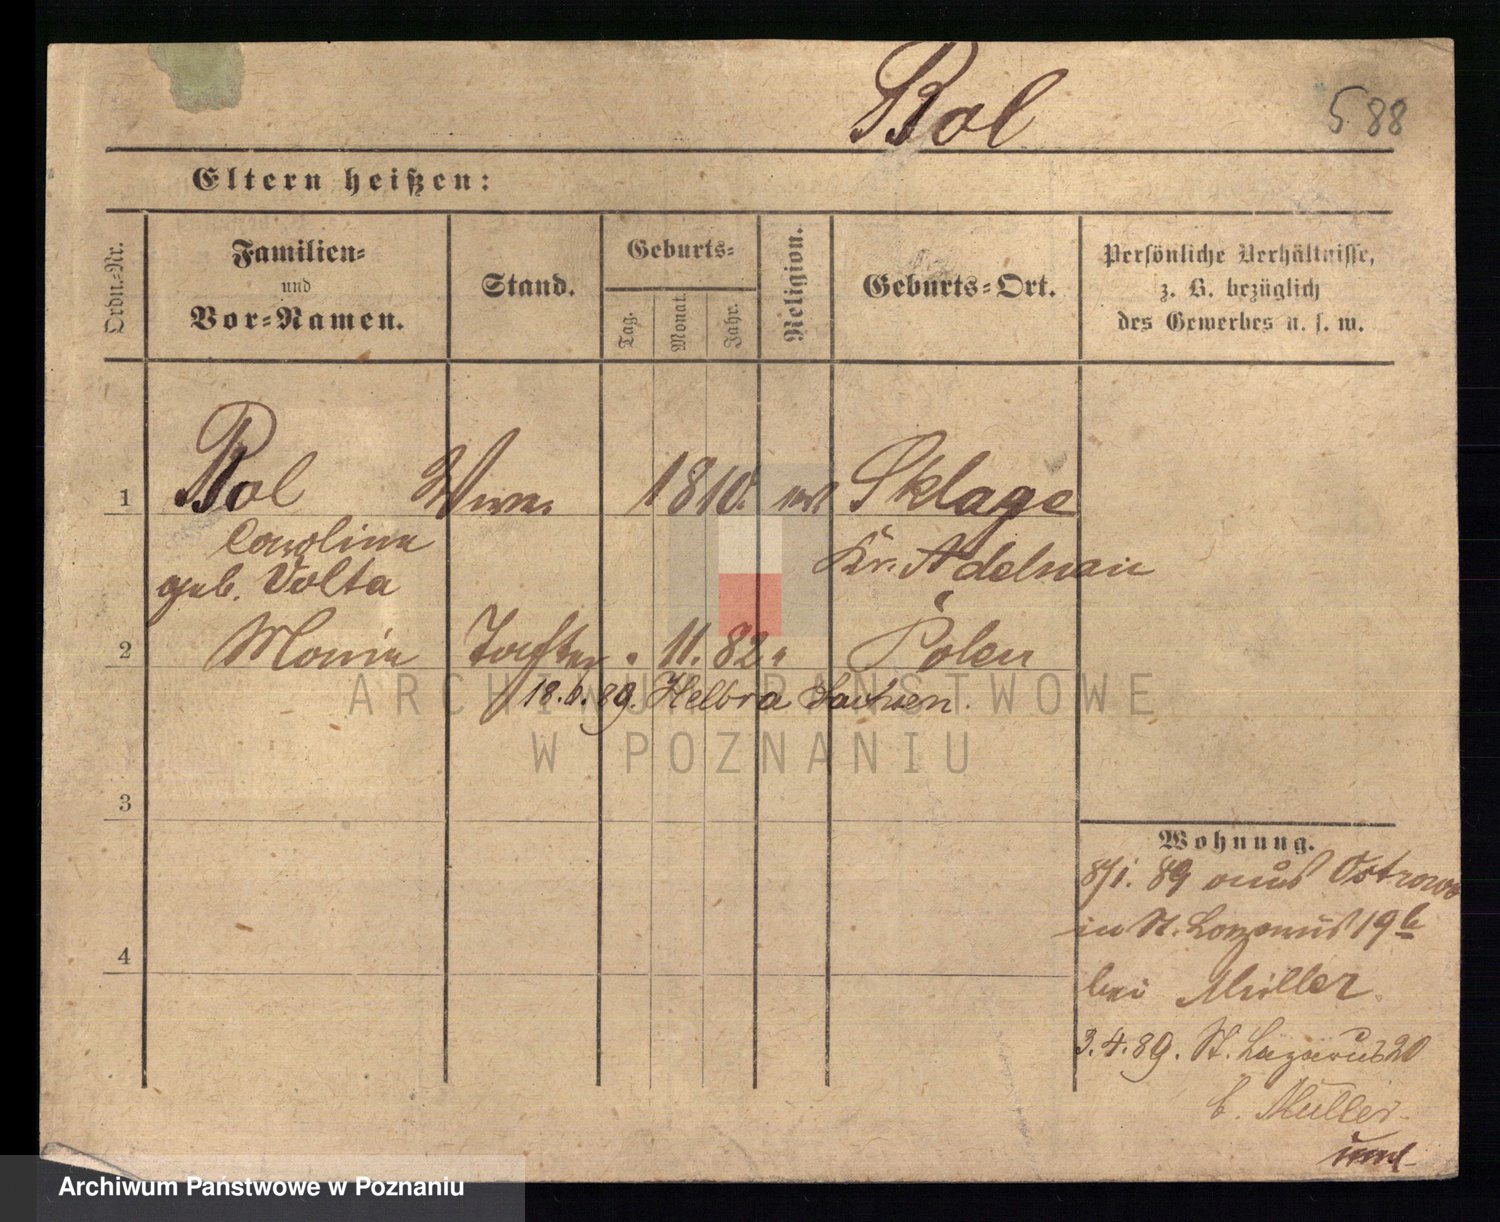 Bol
588
Eltern heißen:
Ordn.-Nr.
Familien-
und
Vor-Namen.
Stand.
Geburts-
Tag.
Monat.
Jahr.
Religion.
Geburts-Ort.
Persönliche Verhältnisse,
z. B. bezüglich
des Gewerbes u. s. w.
1
Bol
1810.
Sklage
Caroline
geb. Volta
Kr. Adelnau
2
Marie
Tochter
11. 82
Polen
18. 89. Helbra Sachsen.
3
4
Wohnung.
8/1. 89 aus Ostrowo
in St. Lazarus 19 b
bei Müller.
3.4.89. St. Lazarus 20
b. Müller
ARCHIWUM PAŃSTWOWE
W POZNANIU
Archiwum Państwowe w Poznaniu